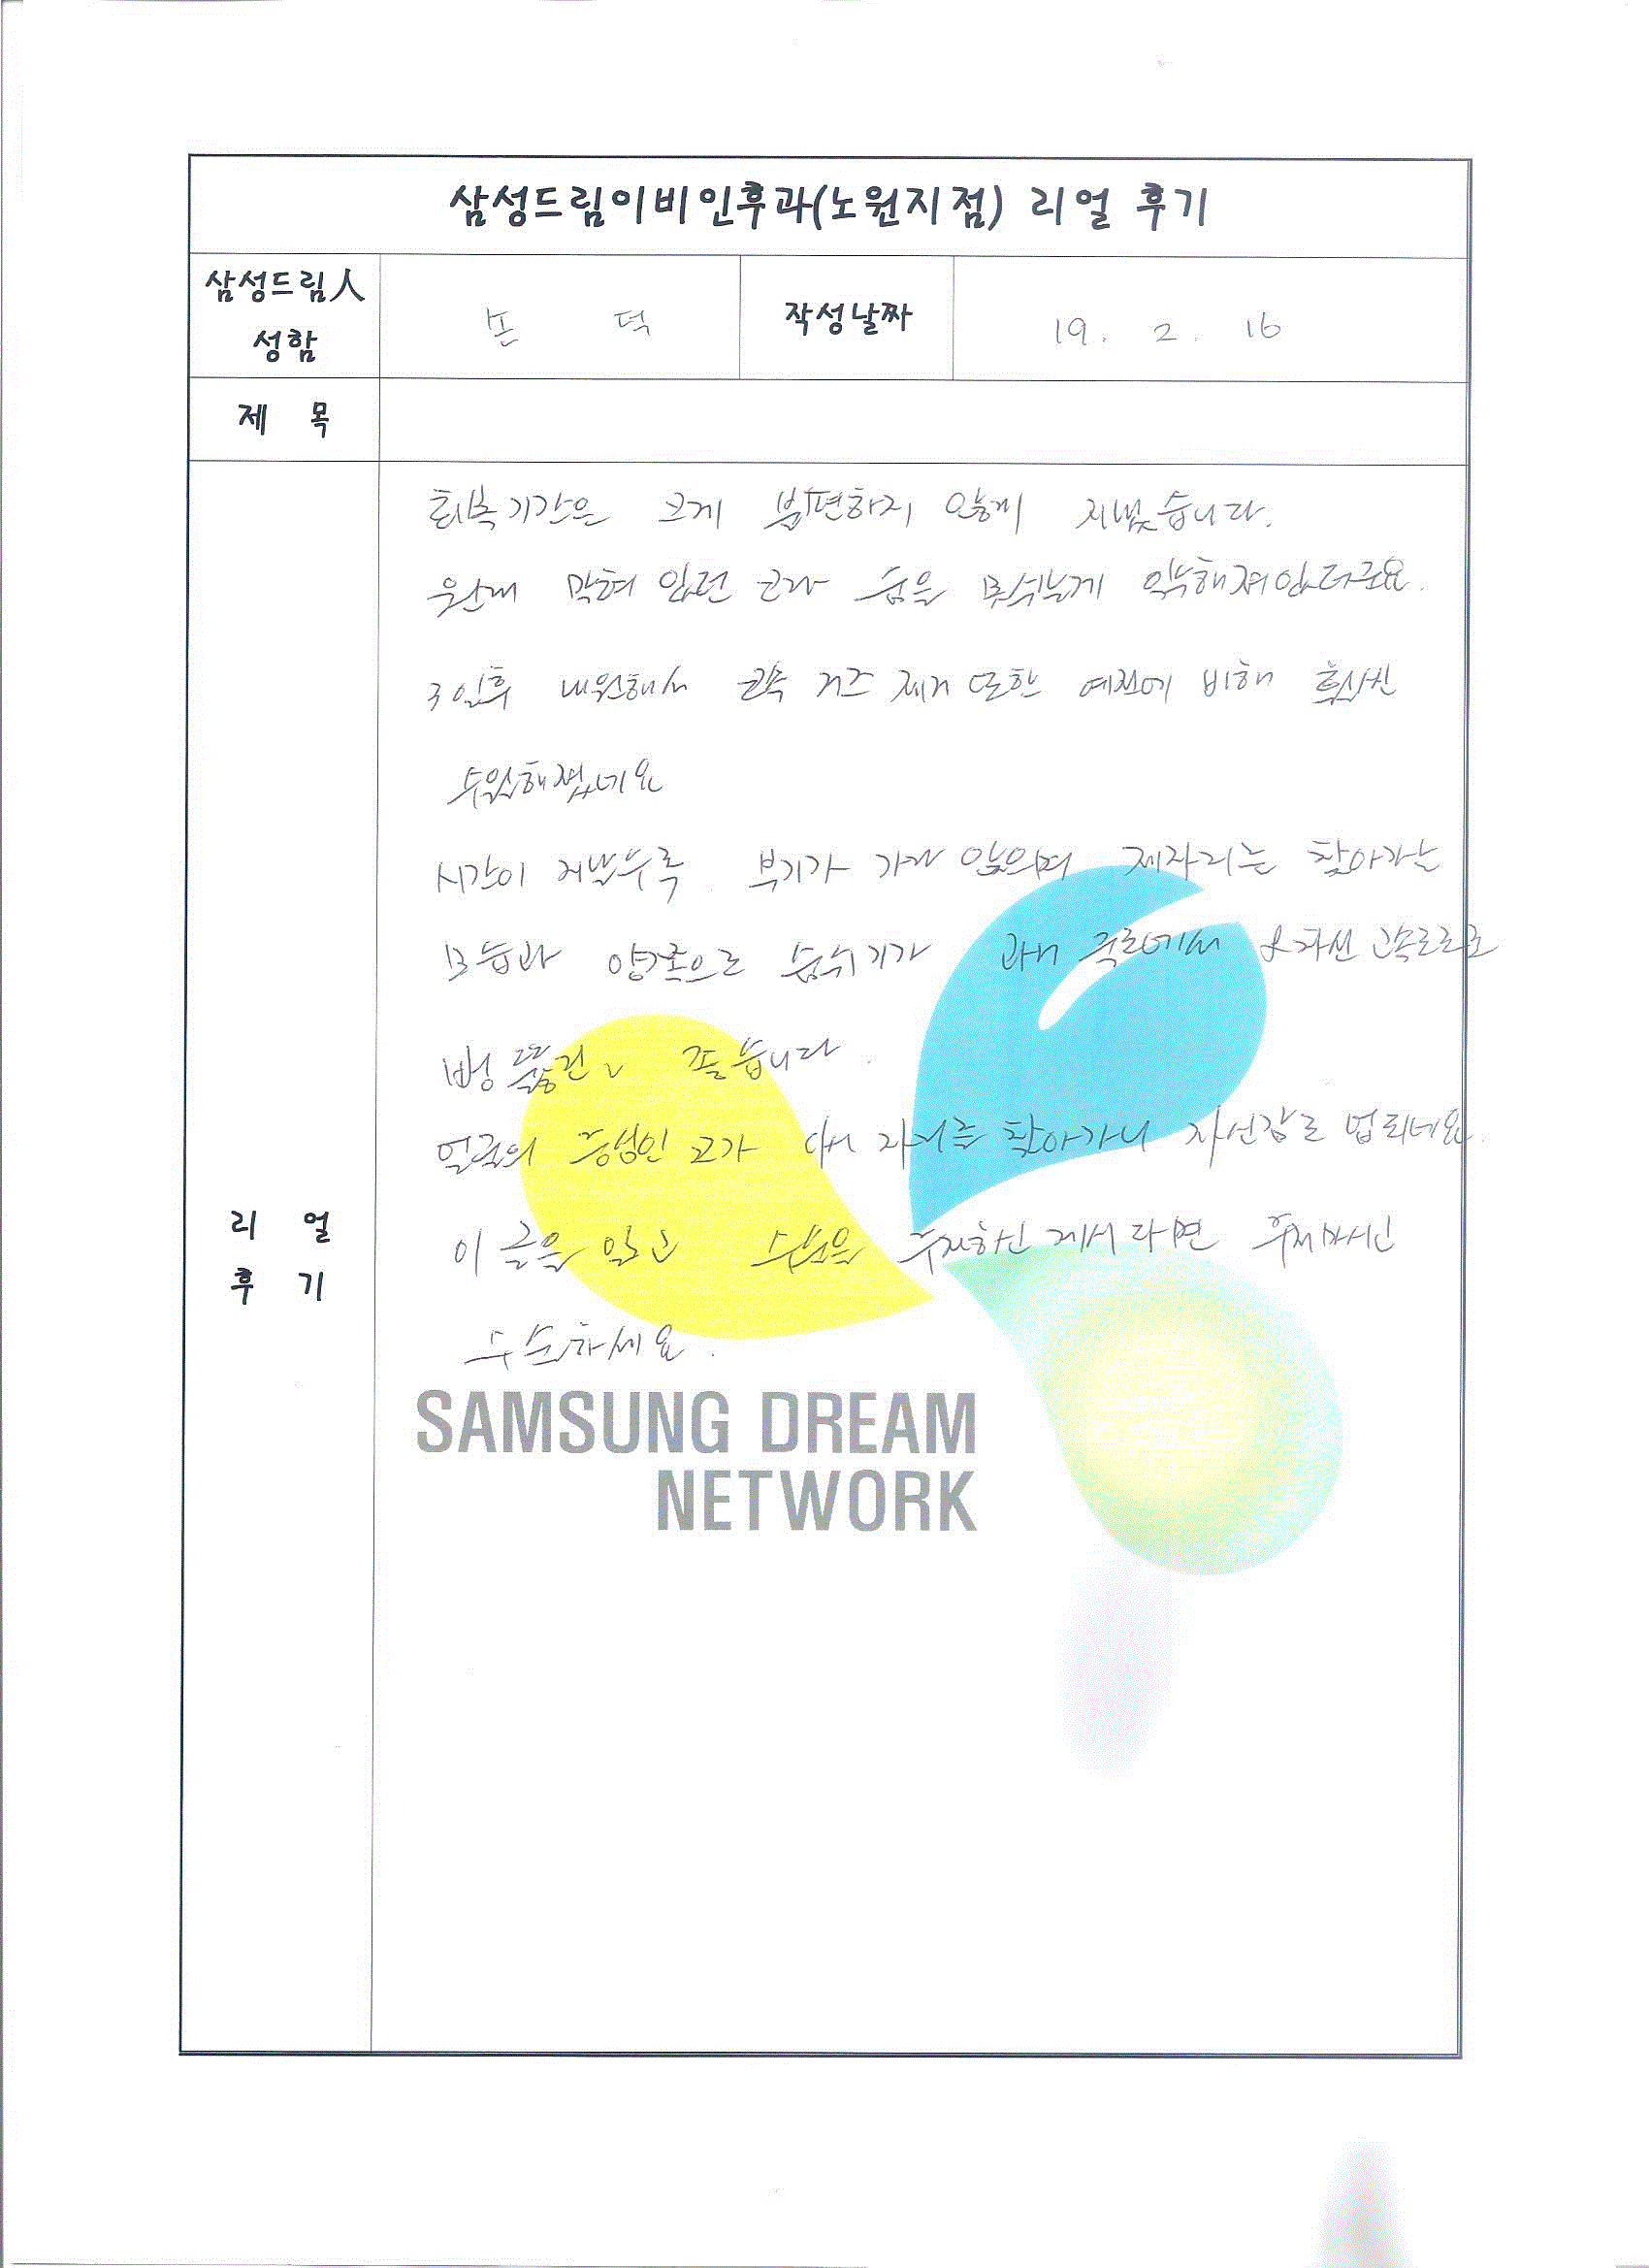 삼성드림이비인후과(노원지점) 리얼 후기
삼성드림人
성함
손 덕
작성날짜
19. 2. 16
제 목
회복기간은 크게 불편하지 않게 지냈습니다.
원래 막혀 있던 코라 숨을 못쉬는게 익숙해져있더라고요.
3일후 내원해서 콧속 거즈 제거 또한 예전에 비해 훨씬
수월해졌네요
시간이 지날수록 부기가 가라 앉으며 제자리를 찾아가는
모습과 양쪽으로 숨쉬기가 4차선 고속도로로
뻥 뚫린 좋습니다.
얼굴의 중심인 코가 다시 자리를 찾아가니 자신감도 생기네요.
리 얼
후 기
이 글을 읽고 수술을 하신
수술하세요.
SAMSUNG DREAM
NETWORK